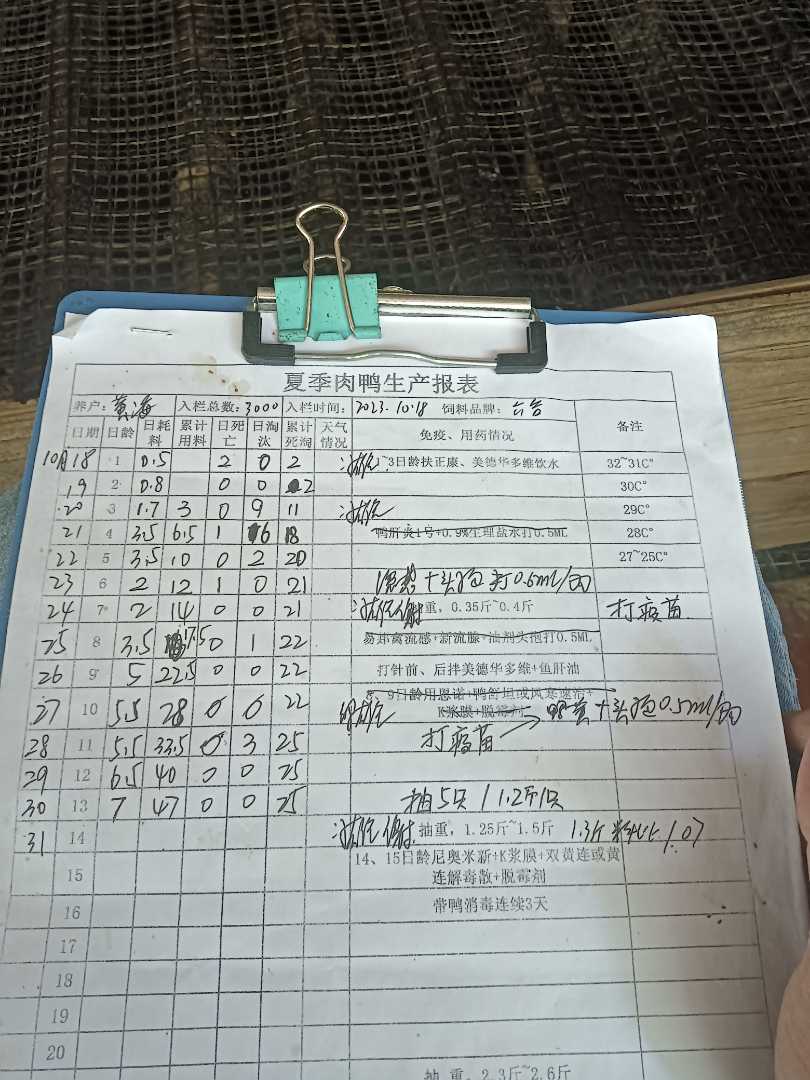 夏季肉鸭生产报表
养户：黄海 入栏总数：3000 入栏时间：2023.10.18 饲料品牌：六合
日期 日龄 日耗料 累计用料 日死亡 日淘汰 累计死淘 天气情况 免疫、用药情况 备注
10月18 1 0.5 2 0 2 ~3日龄扶正康、美德华多维饮水 32~31C°
19 2 0.8 0 0 2 30C°
20 3 1.7 3 0 9 11 29C°
21 4 3.5 6.5 1 6 18 鸭肝炎1号+0.9%生理盐水打0.5ML 28C°
22 5 3.5 10 0 2 20 27~25C°
23 6 2 12 1 0 21 +头孢 打0.6ml/
24 7 2 14 0 0 21 重，0.35斤~0.4斤 打疫苗
25 8 3.5 17.5 0 1 22 易邦禽流感+新流腺+油剂头孢打0.5ML
26 9 5 22.5 0 0 22 打针前、后拌美德华多维+鱼肝油
27 10 5.5 28 0 0 22 8、9日龄用恩诺+鸭舒坦或风寒速治+
K浆膜+脱霉剂 +头孢0.5ml/
28 11 5.5 33.5 0 3 25 打疫苗
29 12 6.5 40 0 0 25
30 13 7 47 0 0 25 抽5只 1.2斤/只
31 14 抽重，1.25斤~1.5斤 1.3斤 料比 1.07
15 14、15日龄尼奥米新+K浆膜+双黄连或黄
连解毒散+脱霉剂
16 带鸭消毒连续3天
17
18
19
20
抽重，2.3斤~2.6斤